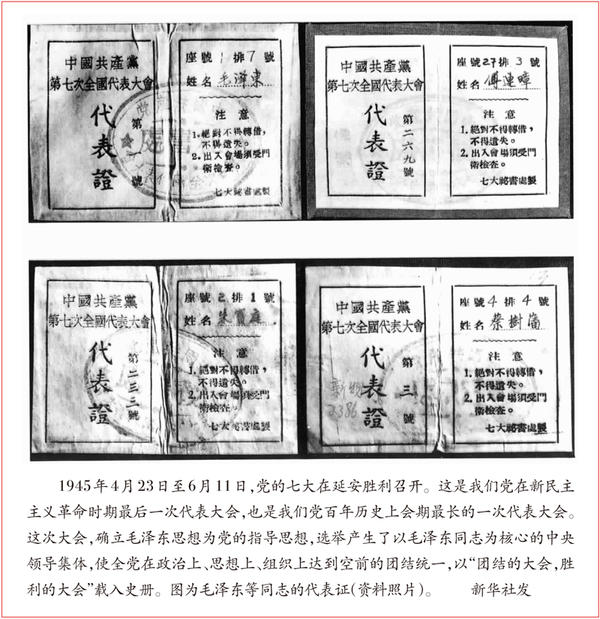 中國共產黨
第七次全國代表大會
代表證
第一號
座號1排7號
姓名 毛澤東
注意
1.絕對不得轉借，
不得遺失。
2.出入會場須受門
衛檢查。
七大祕書處製
中國共產黨
第七次全國代表大會
代表證
第二六九號
座號27排3號
姓名 傅連暲
注意
1.絕對不得轉借，
不得遺失。
2.出入會場須受門
衛檢查。
七大祕書處製
中國共產黨
第七次全國代表大會
代表證
第二三三號
座號2排1號
姓名
注意
1.絕對不得轉借，
不得遺失。
2.出入會場須受門
衛檢查。
七大祕書處製
中國共產黨
第七次全國代表大會
代表證
第三號
座號4排4號
姓名 蔡樹藩
注意
1.絕對不得轉借，
不得遺失。
2.出入會場須受門
衛檢查。
七大祕書處製
1945年4月23日至6月11日，党的七大在延安胜利召开。这是我们党在新民主
主义革命时期最后一次代表大会，也是我们党百年历史上会期最长的一次代表大会。
这次大会，确立毛泽东思想为党的指导思想，选举产生了以毛泽东同志为核心的中央
领导集体，使全党在政治上、思想上、组织上达到空前的团结统一，以“团结的大会，胜
利的大会”载入史册。图为毛泽东等同志的代表证(资料照片)。 新华社发